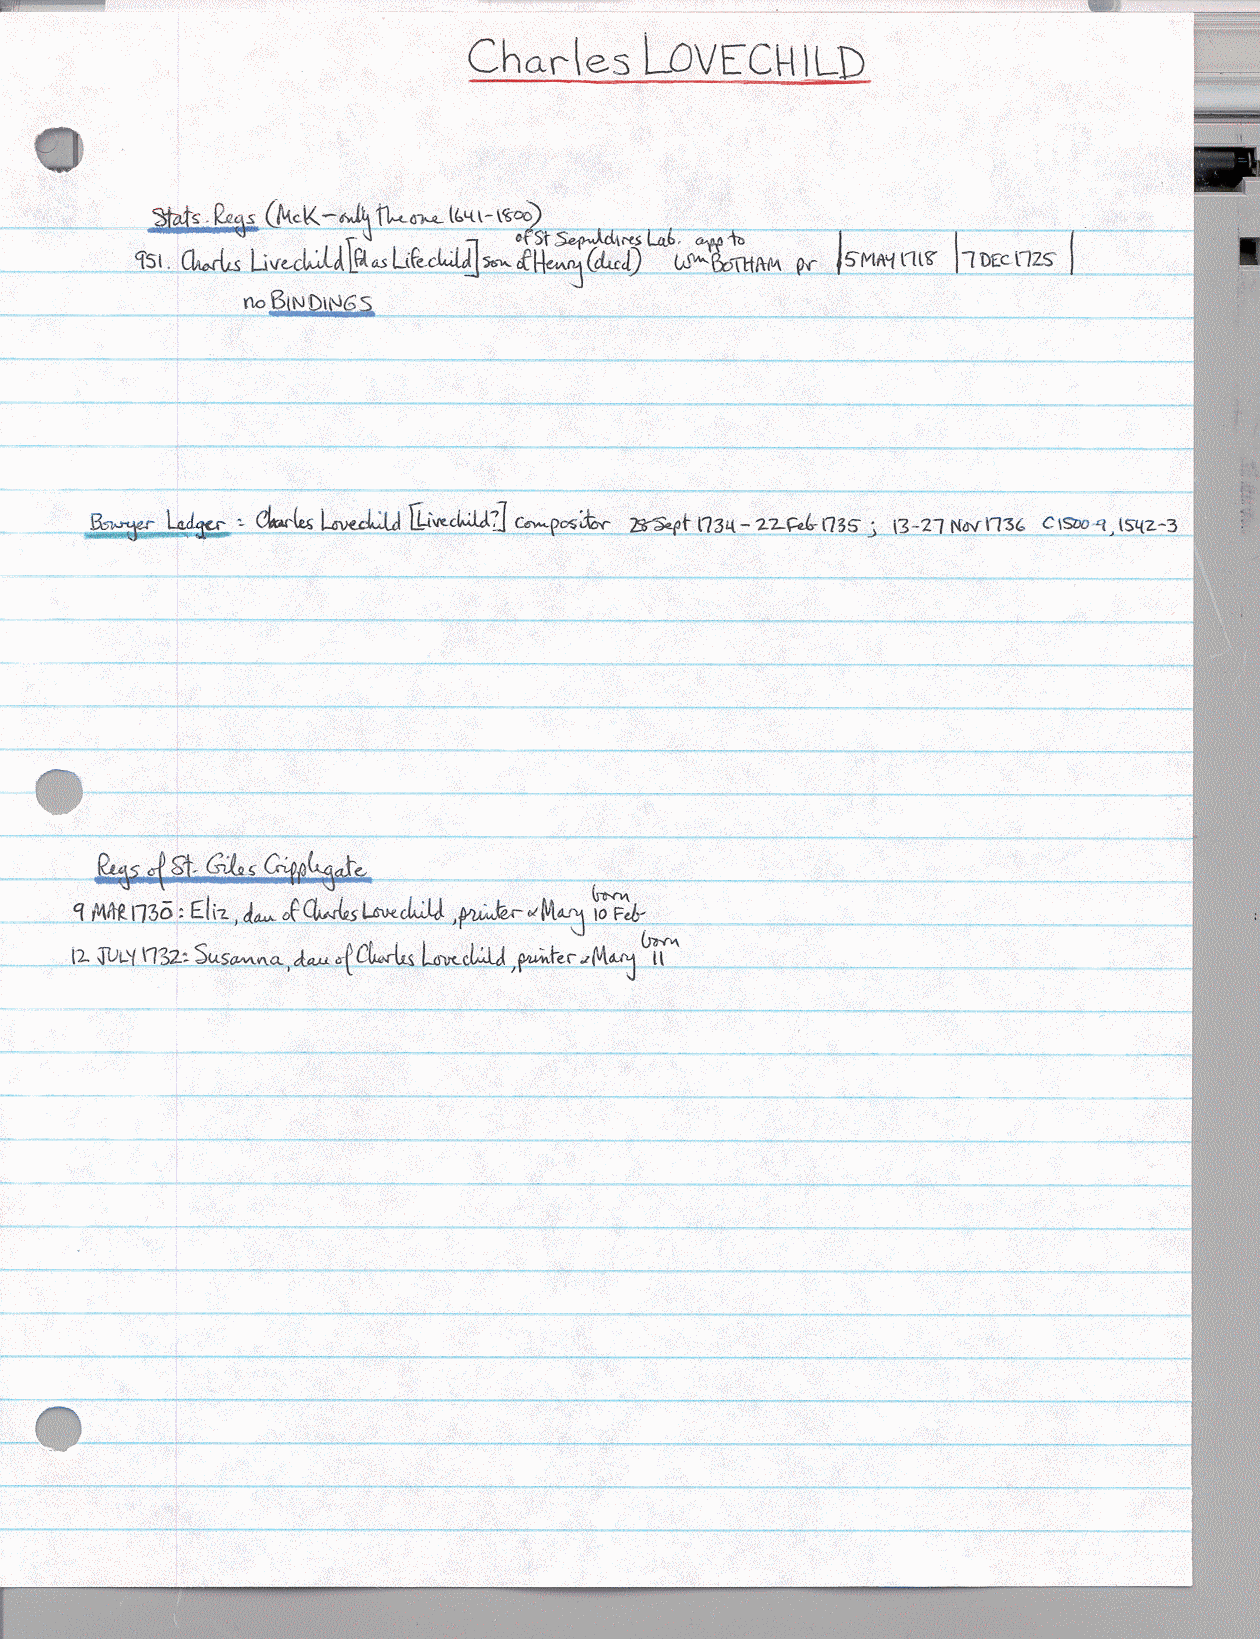 Charles LOVECHILD
Stats. Regs (McK - only the one 1641-1800)
of St Sepulchres Lab. app to
951. Charles Livechild [Fd as Lifechild] son of Henry (decd) Wm BOTHAM pr | 5 MAY 1718 | 7 DEC 1725 |
no BINDINGS
Bowyer Ledger = Charles Lovechild [Livechild?] compositor 28 Sept 1734 - 22 Feb 1735 ; 13-27 Nov 1736 C1500-9, 1542-3
Regs of St. Giles Cripplegate
born
9 MAR 1730 : Eliz, dau of Charles Lovechild, printer & Mary 10 Feb
born
12 JULY 1732: Susanna, dau of Charles Lovechild, printer & Mary 11